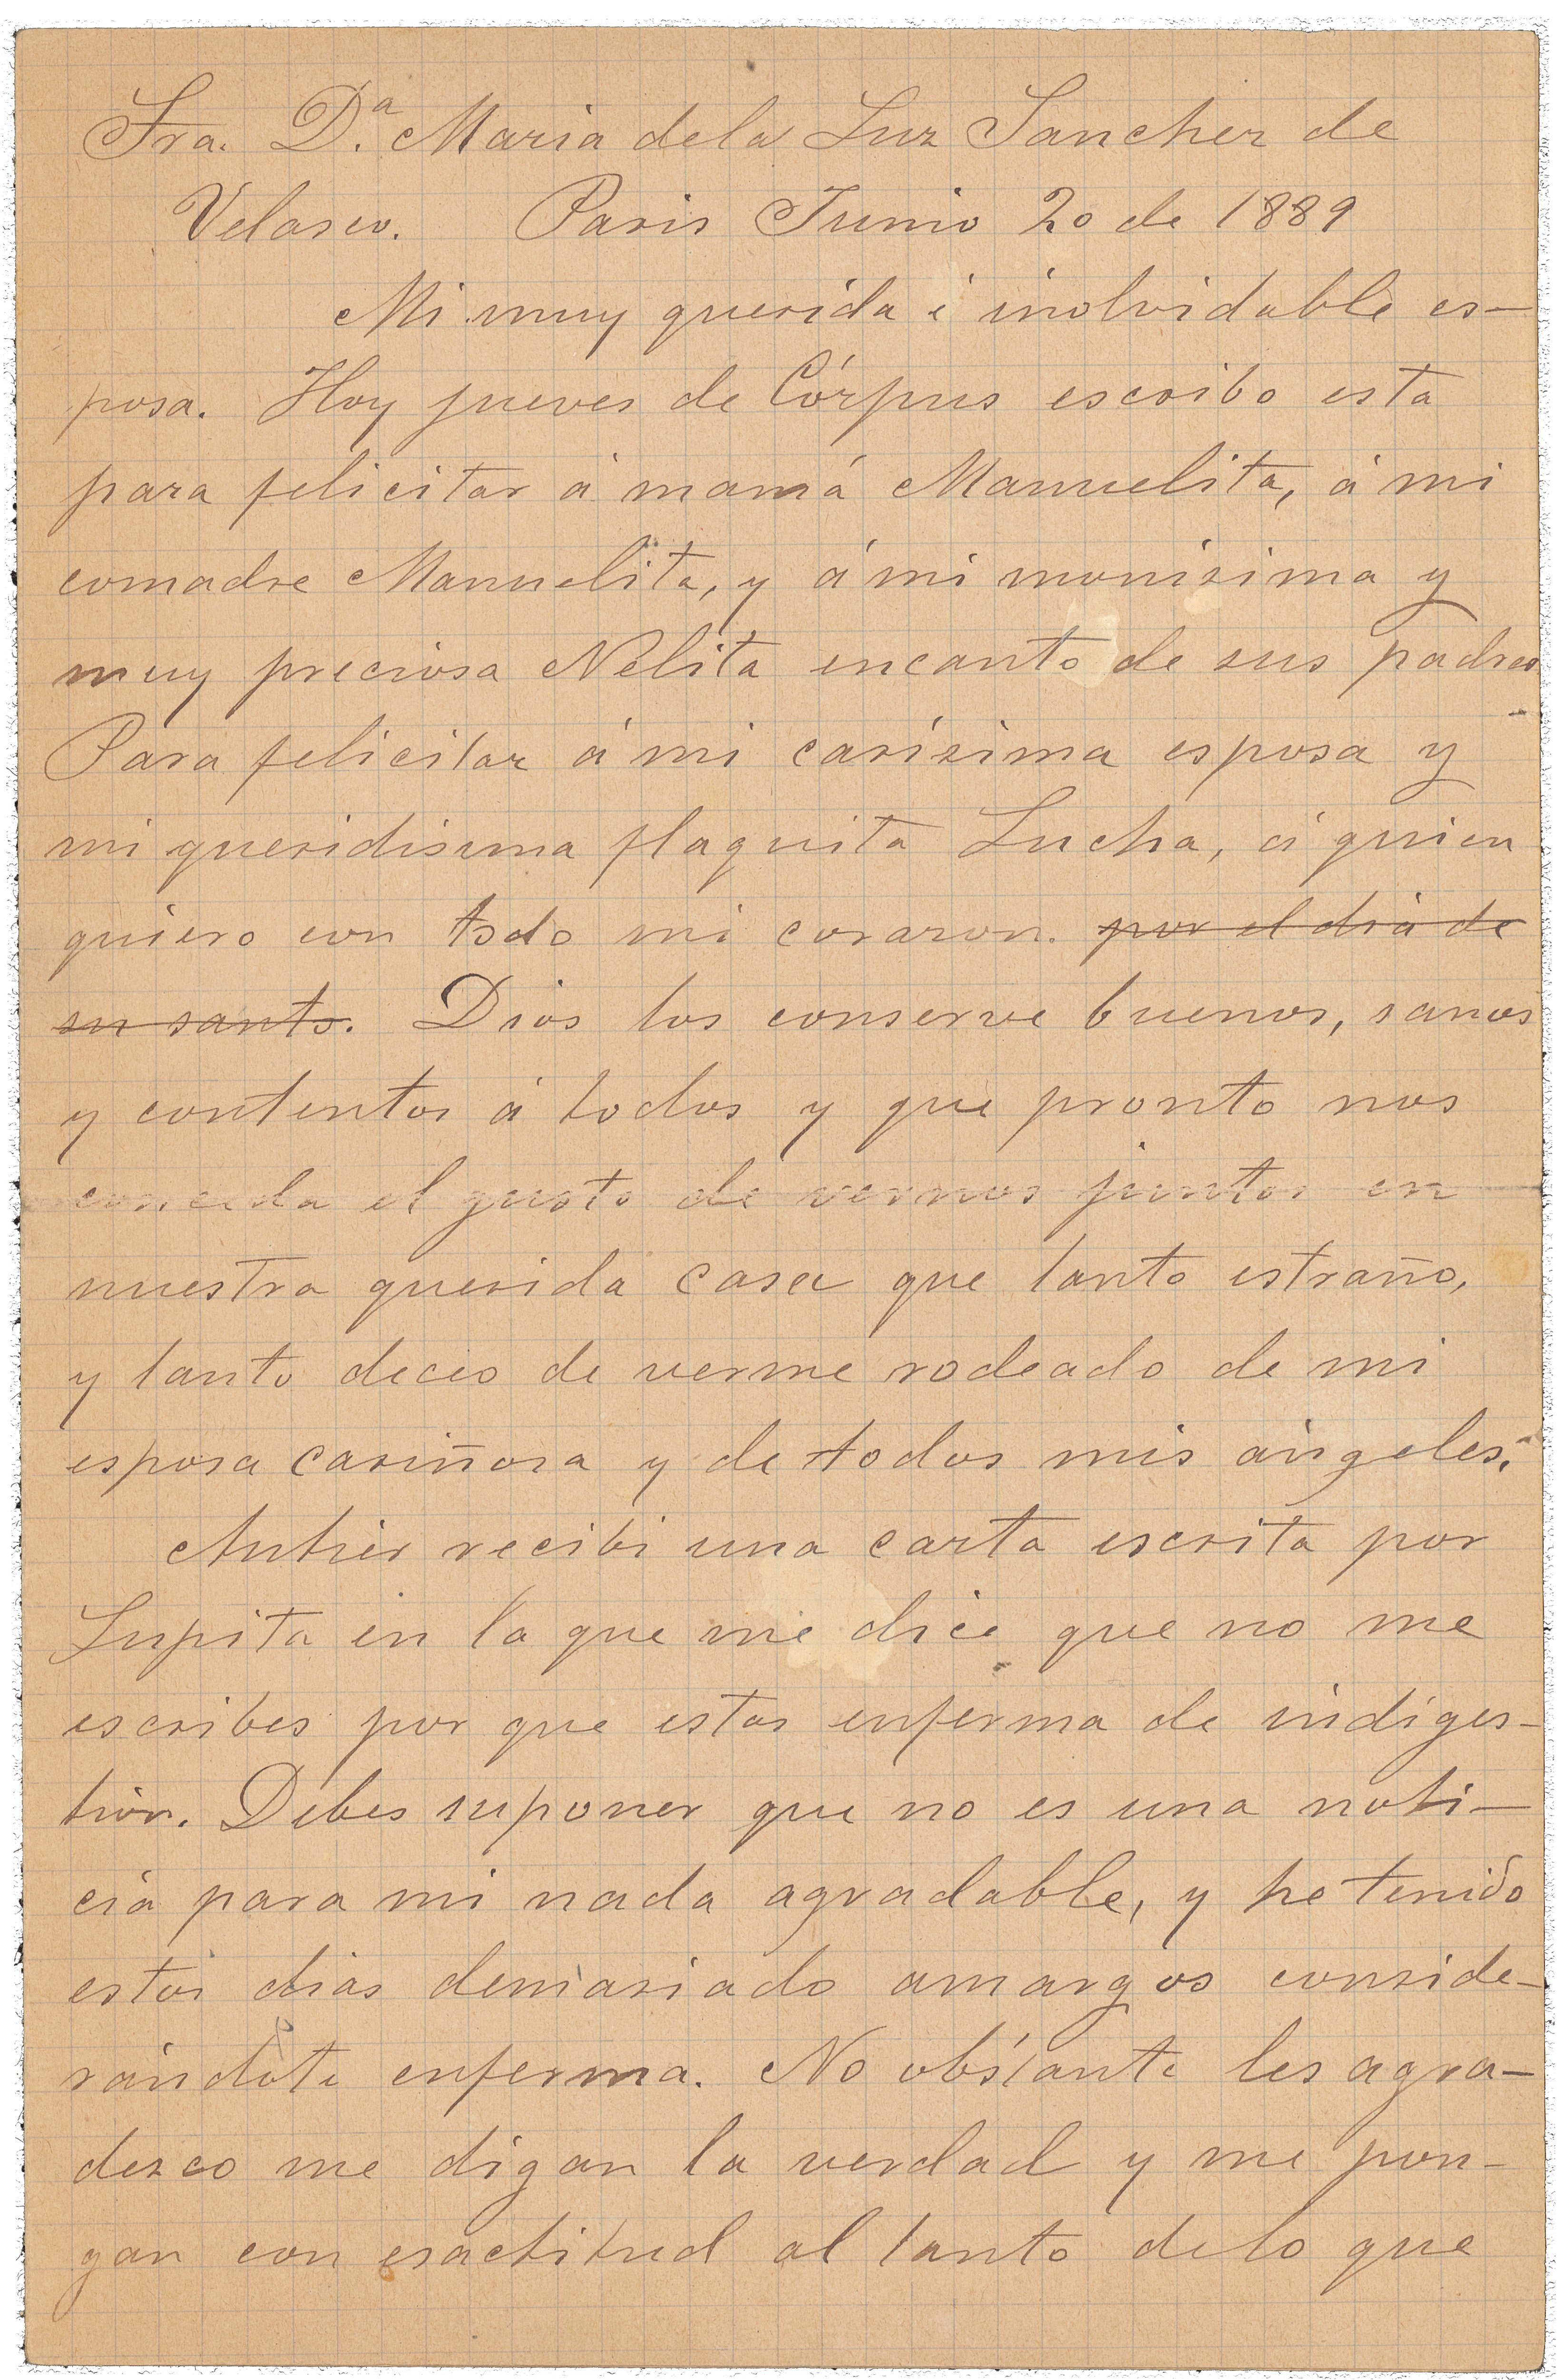 Sra. D.ª Maria dela Luz Sanchez de
Velasco. Paris Junio 20 de 1889
Mi muy querida é inolvidable es-
posa. Hoy jueves de Córpus escribo esta
para felicitar á mamá Manuelita, á mi
comadre Manuelita, y á mi monísima y
muy preciosa Nelita encanto de sus padres
Para felicitar á mi carísima esposa y
mi queridisima flaquita Lucha, á quien
quiero con todo mi corazon. ~~por el dia de~~
~~su santo.~~ Dios los conserve buenos, sanos
y contentos á todos y que pronto nos
conceda el gusto de vernos juntos en
nuestra querida casa que tanto estraño,
y tanto deceo de verme rodeado de mi
esposa cariñosa y de todos mis ángeles.
Antier recibi una carta escrita por
Lupita en la que me dice que no me
escribes por que estas enferma de indiges-
tion. Debes suponer que no es una noti-
cia para mi nada agradable, y he tenido
estos dias demasiado amargos conside-
rándote enferma. No obstante les agra-
dezco me digan la verdad y me pon-
gan con esactitud al tanto delo que